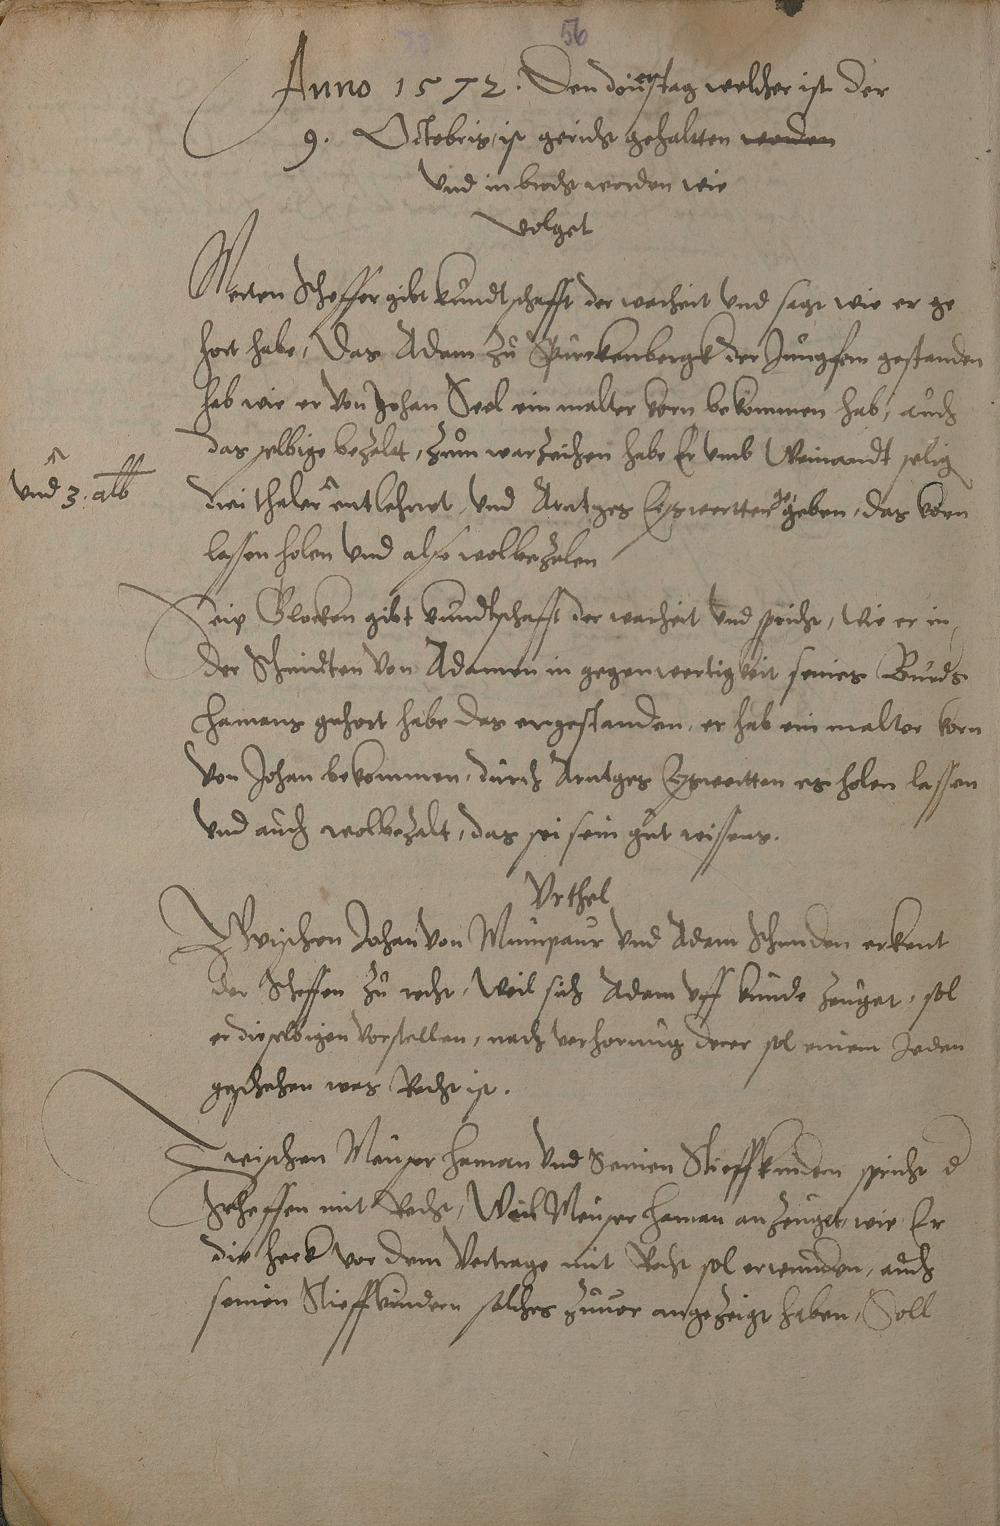 56
Anno 1572. Den donerstag welcher ist der
9. Octobris, ist gericht gehaltten worden
Vnd in bracht worden wie
volget
Merten Scheffer gibt kundtschafft der warheit vnd sagt wie er ge
hort habe, Das Adam zu Pürckenbergk der Jungfern gestanden
hab wie er von Johan Seel ein malter korn bekommen hab, auch
das selbige bezalt, Zum warzeichen habe Er vmb Weinandt selig
vnd 3. alb
drei thaler entlehnet, vnd Arntges geben, das korn
lassen holen vnd also wolbezalen
Feip Blocken gibt kundtschafft der warheit vnd spricht, wie er in
der Schmidten von Adamen in gegenwertigkeit seines
Hamans gehort habe das er gestanden, er hab ein malter korn
von Johan bekommen, durch Arntges es holen lassen
vnd auch wolbezalt, das sei sein gut wissens.
Vrthel
Zwischen Johan von Munpaur vnd Adam Schmiden erkent
der Scheffen zu recht, Weil sich Adam vff kunde zeuget, sol
er dieselbigen vorstellen, nach verhorung derer sol einem Jeden
geschehen was Recht ist.
Zwischen Meuser Haman vnd Seinen Stieffkindern spricht d
Scheffen mit Recht, Weil Meuser Haman anzeuget, wie Er
die heck vor dem Vertrage mit Recht sol erwunnen, auch
seinen Stieffkindern solches zuuor angezeigt haben, Soll